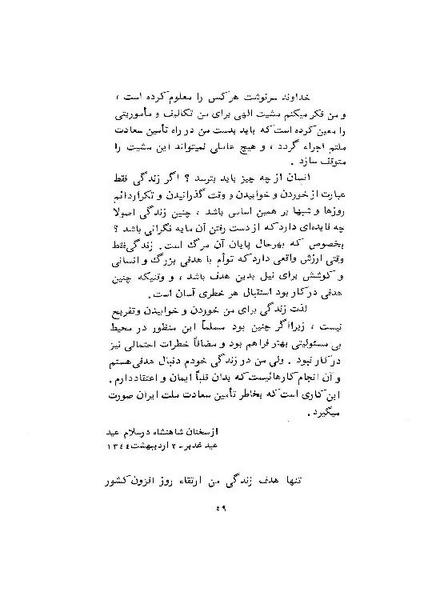 خداوند سرنوشت هرکس را معلوم کرده است ،
و من فکر میکنم مشیت الهی برای من تکالیف و مأموریتی
را معین کرده است که باید بدست من در راه تأمین سعادت
ملتم اجراء گردد ، و هیچ عاملی نمیتواند این مشیت را
متوقف سازد .
انسان از چه چیز باید بترسد ؟ اگر زندگی فقط
عبارت از خوردن و خوابیدن و وقت گذرانیدن و تکرار دائم
روزها و شبها بر همین اساس باشد ، چنین زندگی اصولا
چه فایده‌ای دارد که از دست رفتن آن مایه نگرانی باشد ؟
بخصوص که بهرحال پایان آن مرگ است . زندگی فقط
وقتی ارزش واقعی دارد که توأم با هدفی بزرگ و انسانی
و کوششی برای نیل بدین هدف باشد ، و وقتیکه چنین
هدفی در کار بود استقبال هر خطری آسان است .
لذت زندگی برای من خوردن و خوابیدن و تفریح
نیست ، زیرا اگر چنین بود مسلماً این منظور در محیط
بی مسئولیتی بهتر فراهم بود و مضافاً خطرات احتمالی نیز
در کار نبود . ولی من در زندگی خودم دنبال هدفی هستم
و آن انجام کارهائیست که بدان قلباً ایمان و اعتقاد دارم .
این کاری است که بخاطر تأمین سعادت ملت ایران صورت
میگیرد .
از سخنان شاهنشاه در سلام عید
عید غدیر - ۲ اردیبهشت ۱۳٤٤
تنها هدف زندگی من ارتقاء روز افزون کشور
٤٩